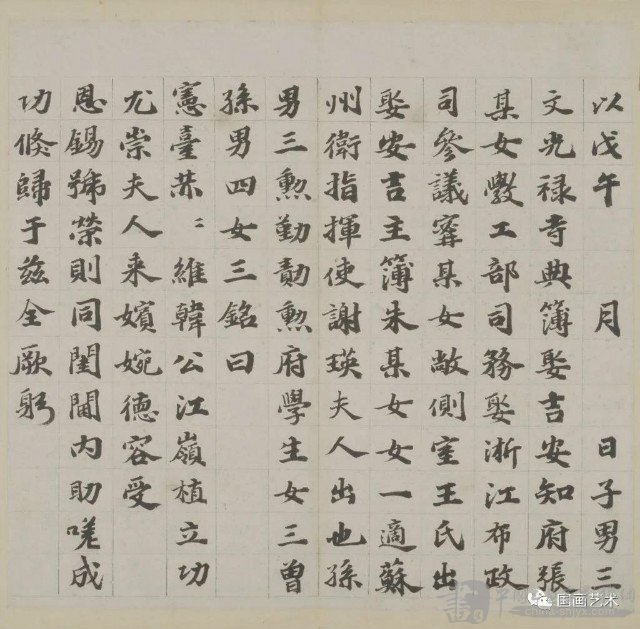 以戊午　月　日子男三
文光禄寺典簿娶吉安知府張
某女斆工部司務娶浙江布政
司參議寗某女敞側室王氏出
娶安吉主簿朱某女女一適蘇
州衛指揮使謝瑛夫人出也孫
男三勲勤勣勲府學生女三曾
孫男四女三銘曰
憲臺恭〻維韓公江嶺植立功
尤崇夫人来嬪婉德容受
恩錫號榮則同閨閫内助嗟成
功倏歸于兹全厥躬
国画艺术